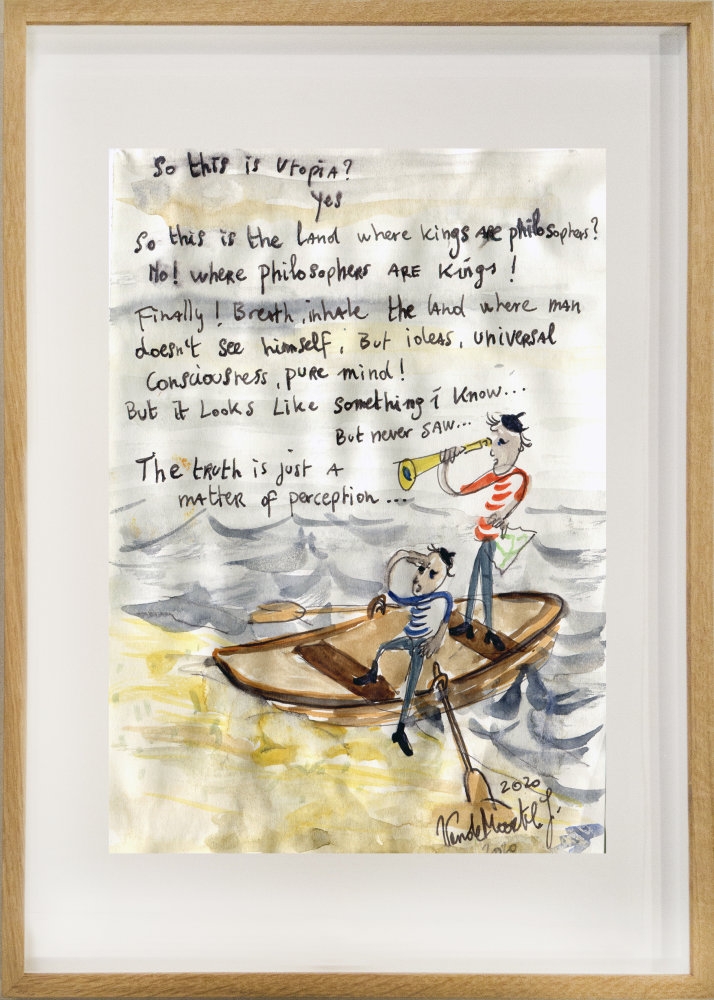 So this is Utopia?
Yes
So this is the land where kings are philosophers?
No! where philosophers are kings!
Finally! Breath, inhale the land where man
doesn't see himself; But ideas, universal
consciousness, pure mind!
But it looks like something i know...
But never saw...
The truth is just a
matter of perception...
2020
2020